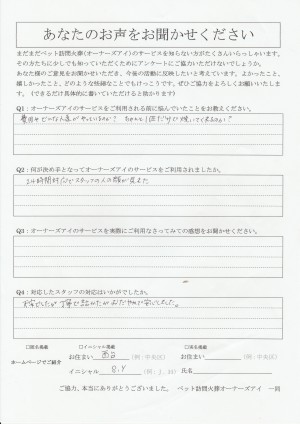 あなたのお声をお聞かせください
まだまだペット訪問火葬(オーナーズアイ)のサービスを知らない方がたくさんいらっしゃいます。
その方たちに少しでも知っていただくためにアンケートにご協力いただけないでしょうか。
あなた様のご意見をお聞かせいただき、今後の活動に反映したいと考えています。よかったこと、
嬉しかったこと、どのような些細なことでもけっこうです。ぜひご協力をよろしくお願いいたします。
(できるだけ具体的に書いていただけると助かります)
Q1:オーナーズアイのサービスをご利用される前に悩んでいたことをお教えください。
費用やどんな人達がやっているのか? ちゃんと1匹だけで焼いてくれるのか?
Q2:何が決め手となってオーナーズアイのサービスをご利用されましたか。
24時間対応でスタッフの人の顔が見えた
Q3:オーナーズアイのサービスを実際にご利用なさってみての感想をお聞かせください。
Q4:対応したスタッフの対応はいかがでしたか。
丁寧で
□匿名掲載 □イニシャル掲載 □実名掲載
ホームページでご紹介
お住まい (例:中央区) お住まい (例:中央区)
イニシャル (例:J.SS) 氏名
ご協力、本当にありがとうございました。 ペット訪問火葬オーナーズアイ 一同